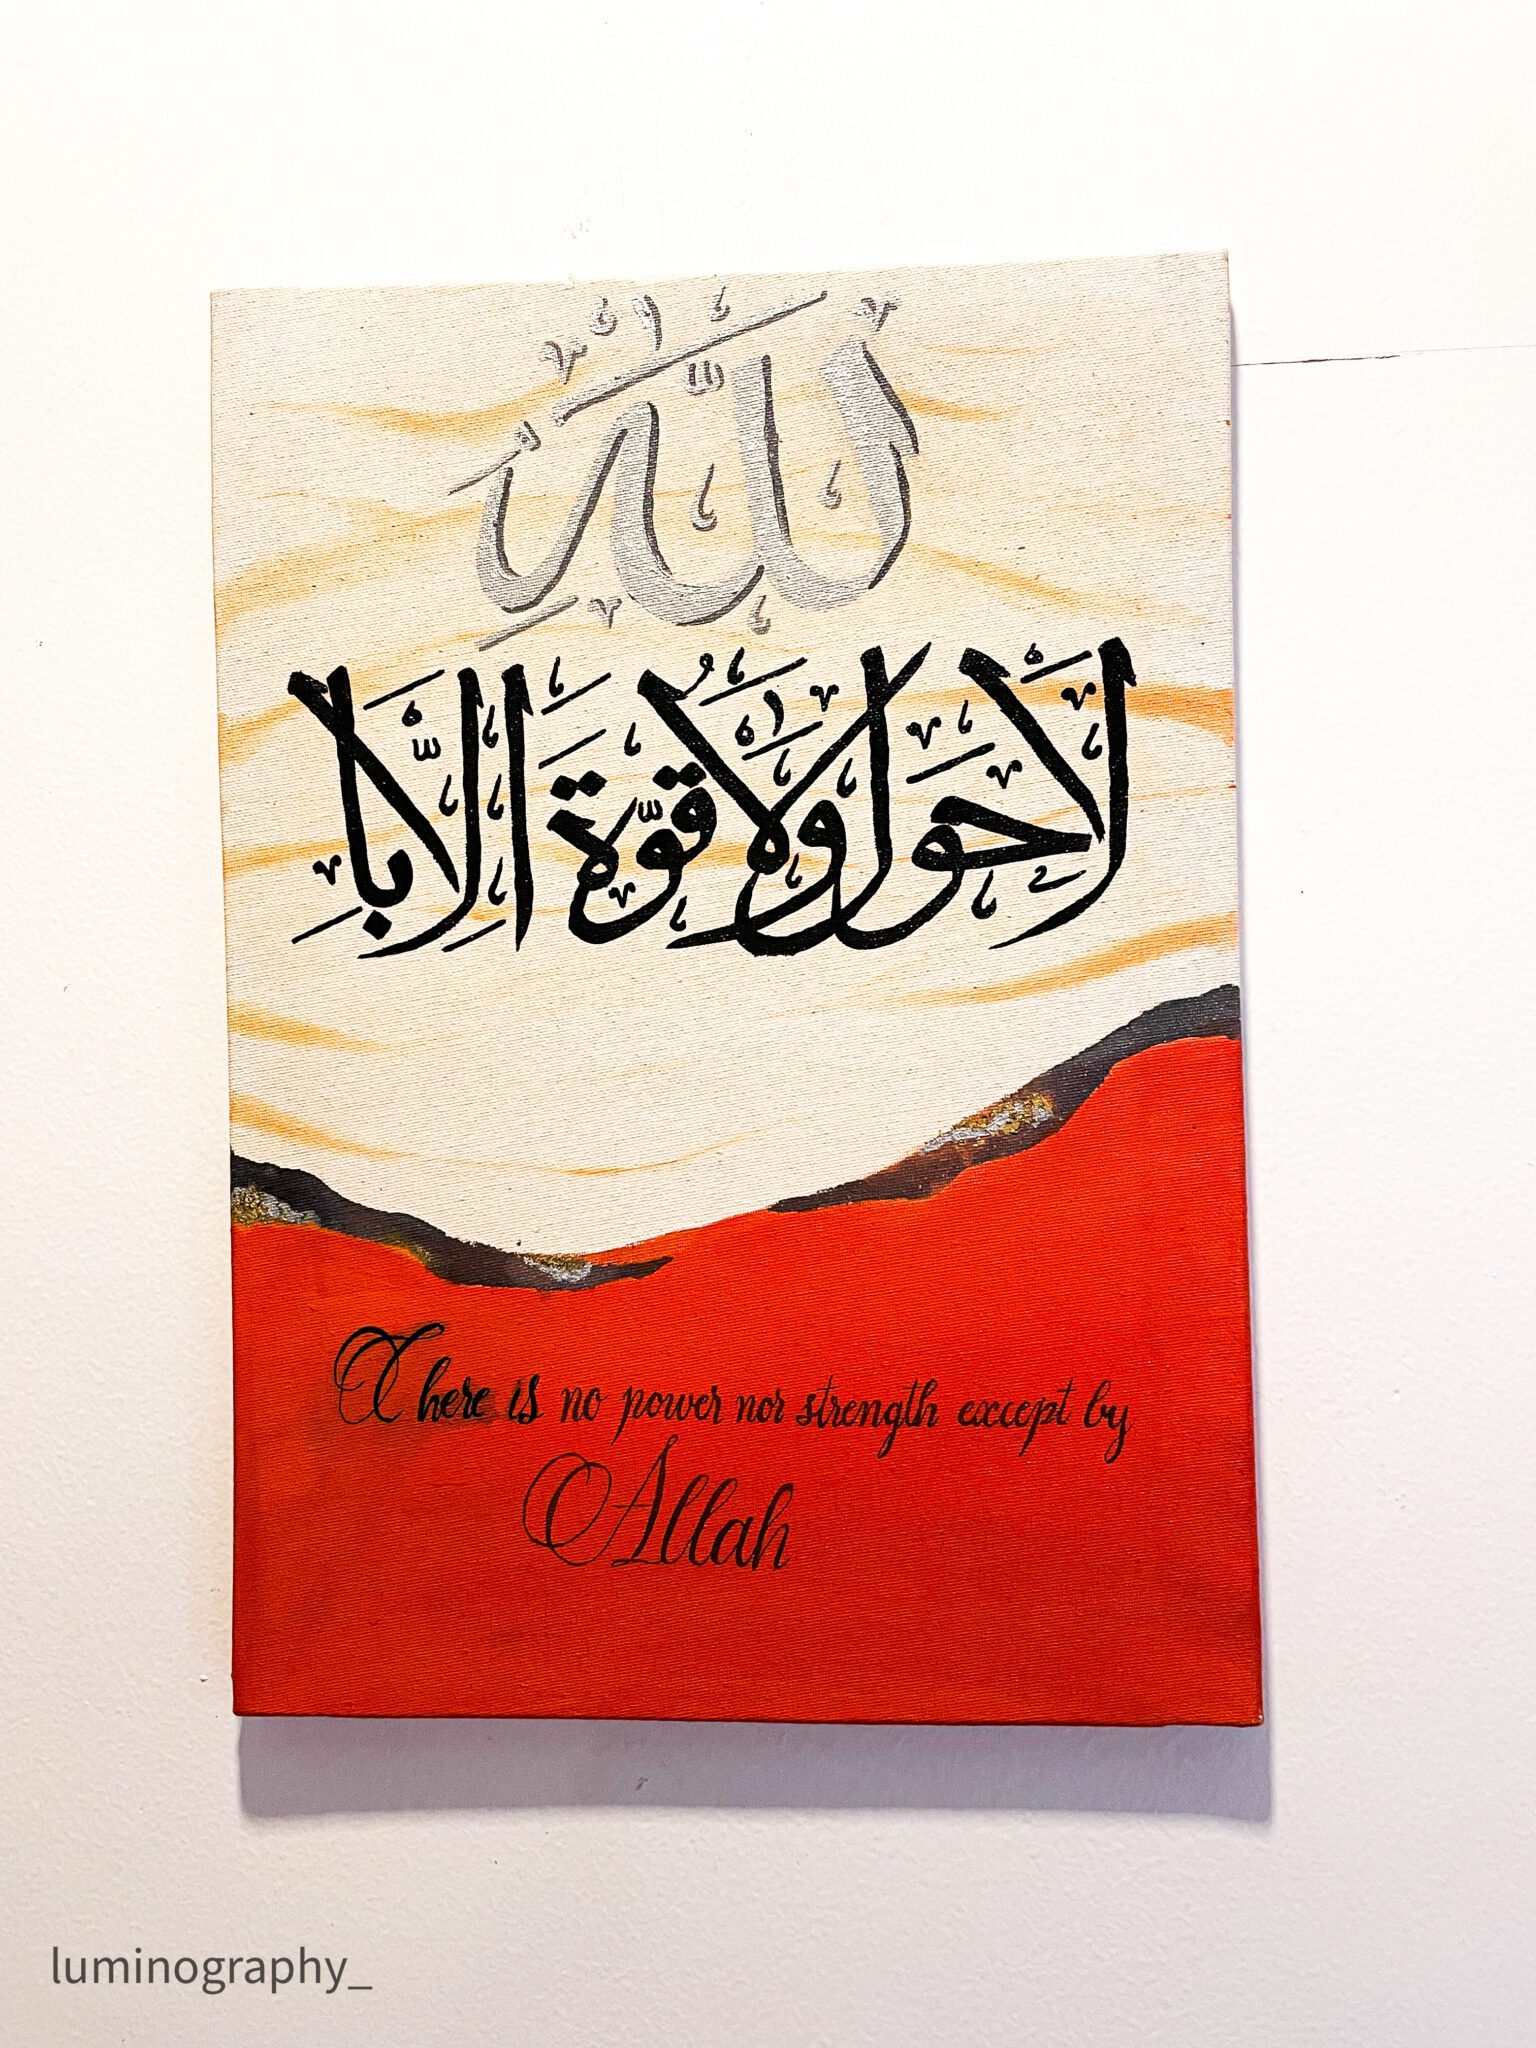 لله
لا حول ولا قوة الا با
There is no power nor strength except by
Allah
luminography_